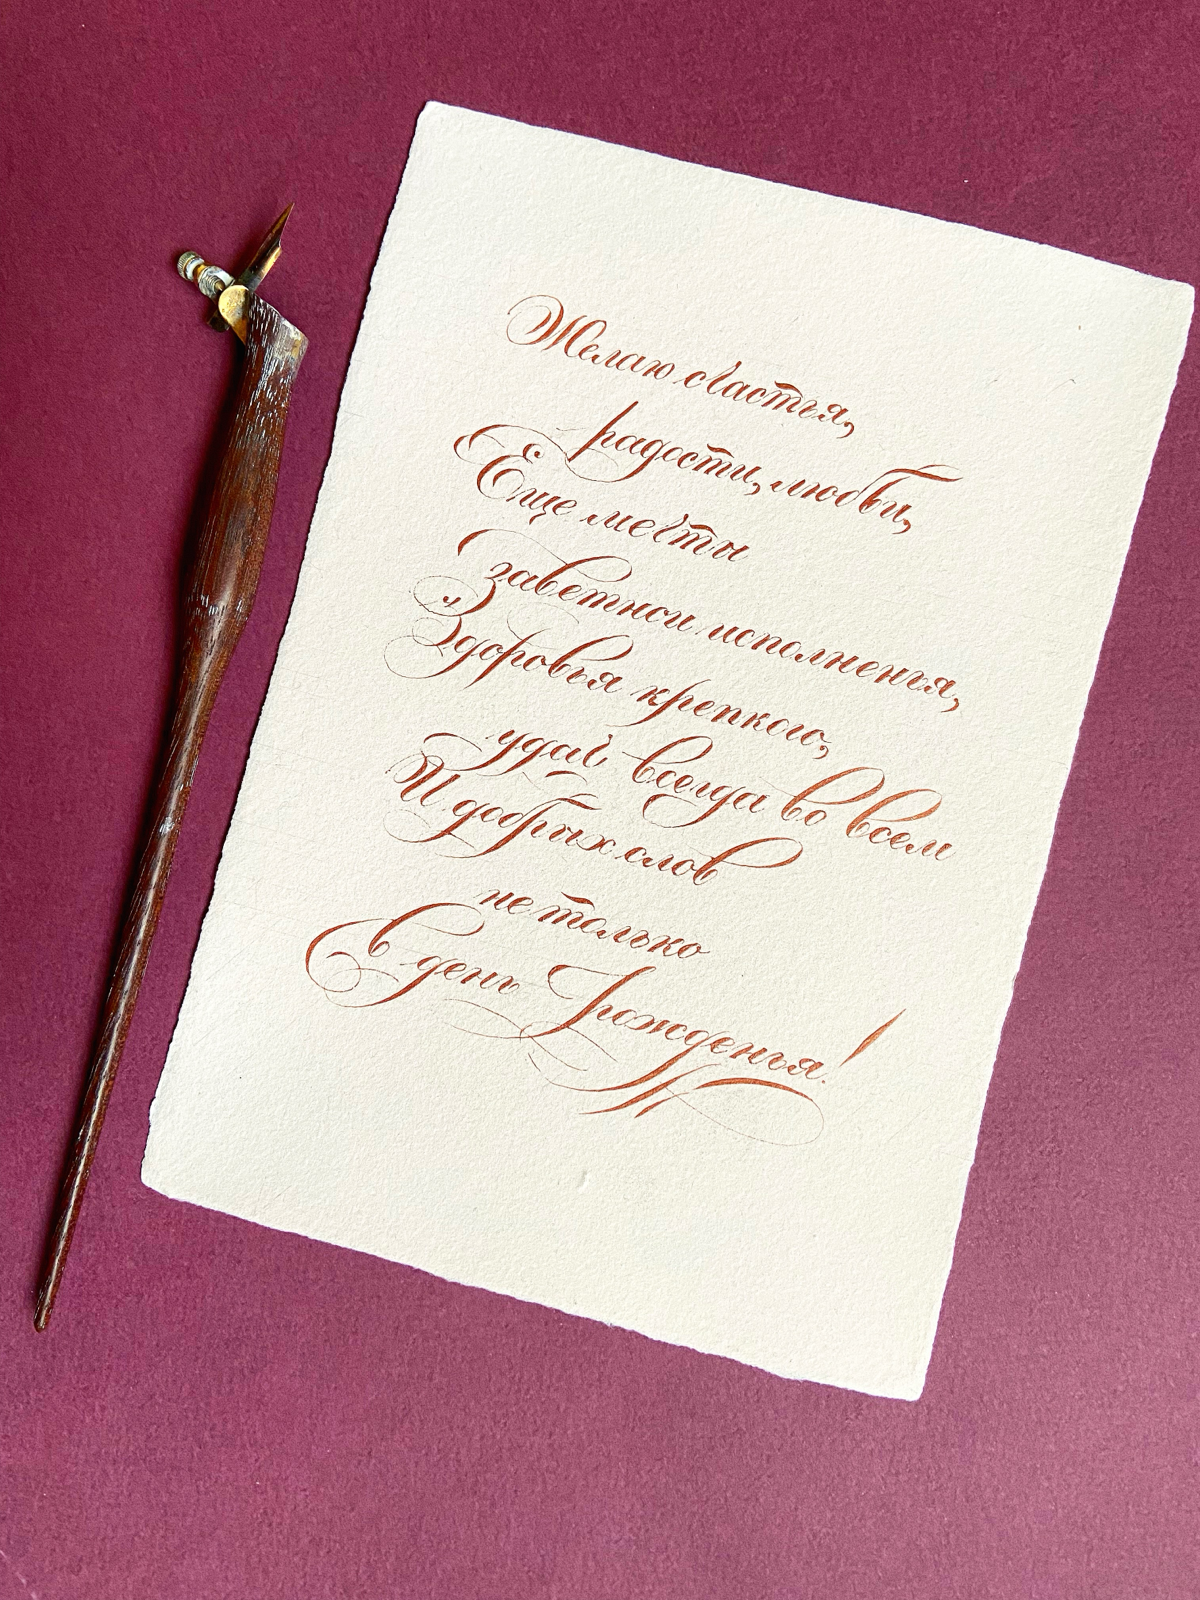 Желаю счастья,
радости, любви,
Еще мечты
заветной исполненья,
Здоровья крепкого,
удач всегда во всем
И добрых слов
не только
в день Рожденья!